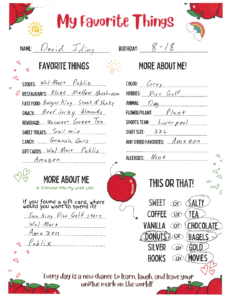 My Favorite Things
NAME: David BIRTHDAY: 8-18
FAVORITE THINGS
STORES: Wal-Mart Publix
RESTAURANTS: Mellow Mushroom
FAST FOOD: Burger King, Steak N Shake
SNACK: Beef Jerky Almonds
BEVERAGE: Green Tea
SWEET TREATS: Trail mix
CANDY: Granola Bars
GIFT CARDS: Wal Mart Publix
Amazon
MORE ABOUT ME!
COLOR: Grey
HOBBIES: Disc Golf
ANIMAL: Dog
FLOWER/PLANT: Plant
SPORTS TEAM: Liverpool
SHIRT SIZE: 2XL
ANY OTHER FAVORITES: Amazon
ALLERGIES: None
MORE ABOUT ME
If you found a gift card, where
would you want to spend it?
Disc Golf store
Wal Mart
Amazon
Publix
THIS OR THAT!
SWEET or SALTY
COFFEE or TEA
VANILLA or CHOCOLATE
DONUTS or BAGELS
SILVER or GOLD
BOOKS or MOVIES
Every day is a new chance to learn, laugh, and leave your
unique mark on the world!